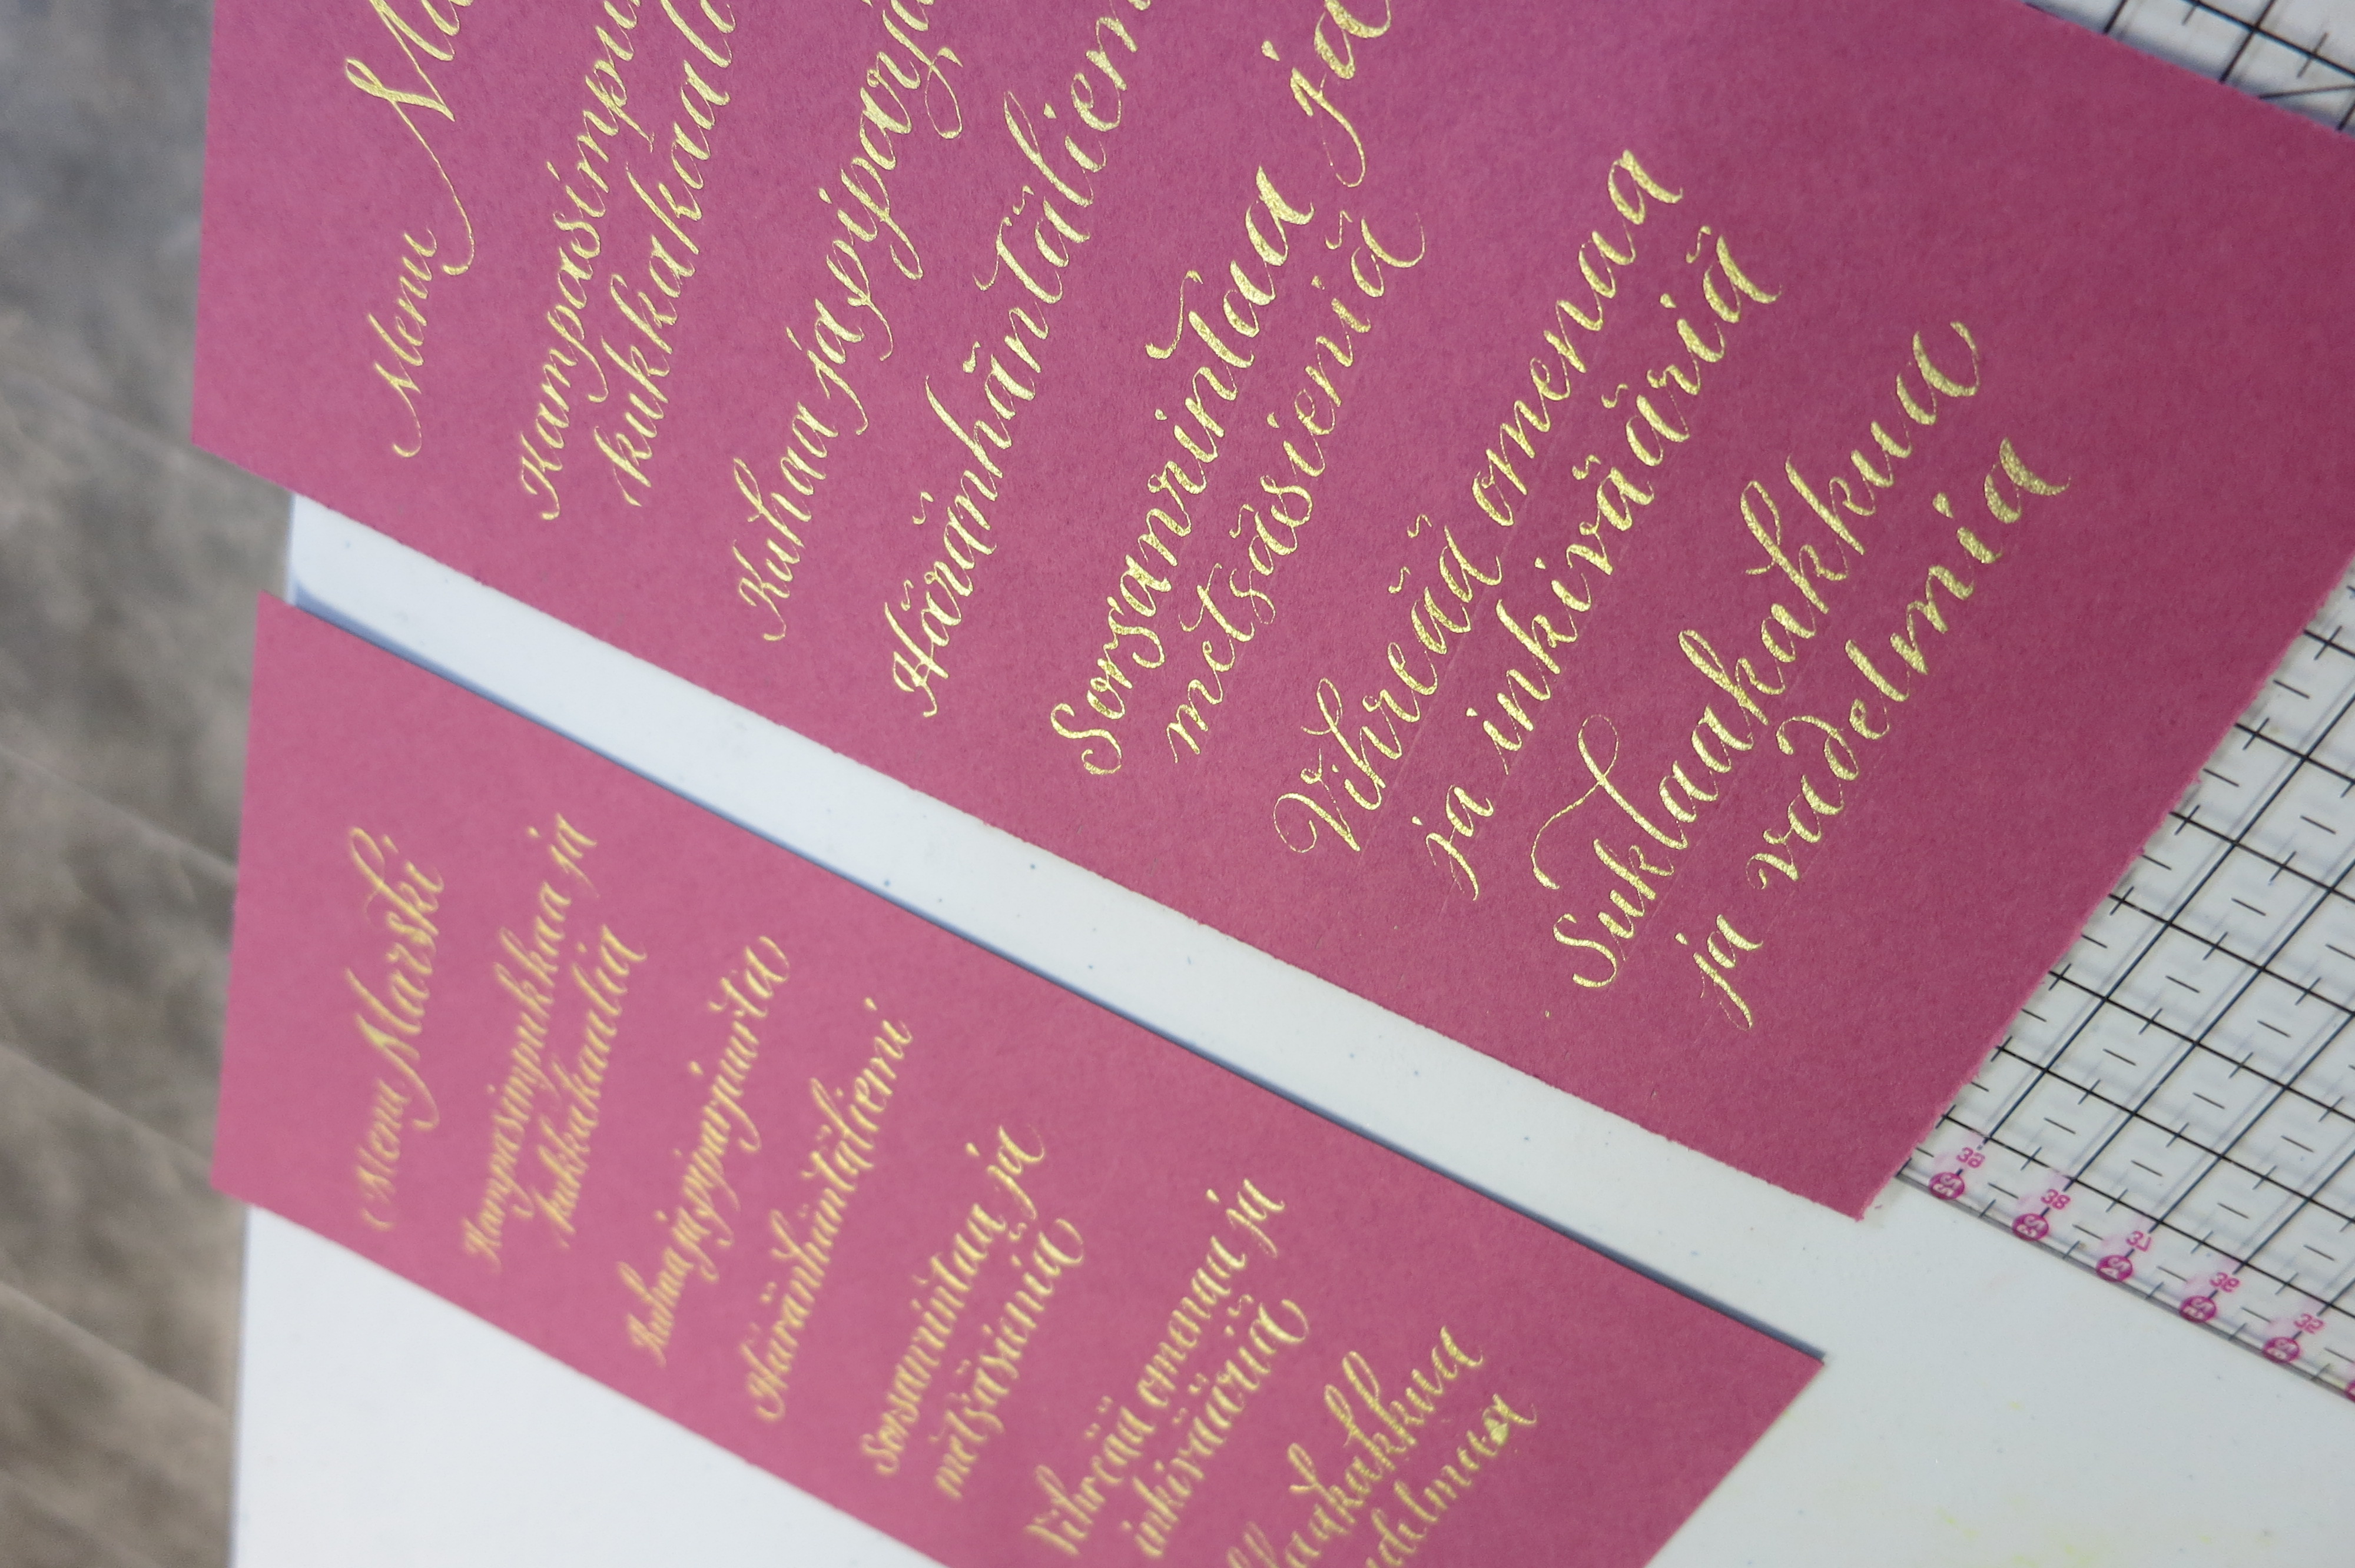 Menu Ma
Kampasimpu
kukkakaal
Kuhaa ja piparj
Häränhäntäliem
Sorsanrintaa ja
metsäsieniä
Vihreää omenaa
ja inkivääriä
Suklaakakkua
ja vadelmia
Menu Marski
Kampasimpukkaa ja
kukkakaalia
Kuhaa ja piparjuurta
Häränhäntäliemi
Sorsanrintaa ja
metsäsieniä
Vihreää omenaa ja
inkivääriä
klaakakkua
adelmiaa